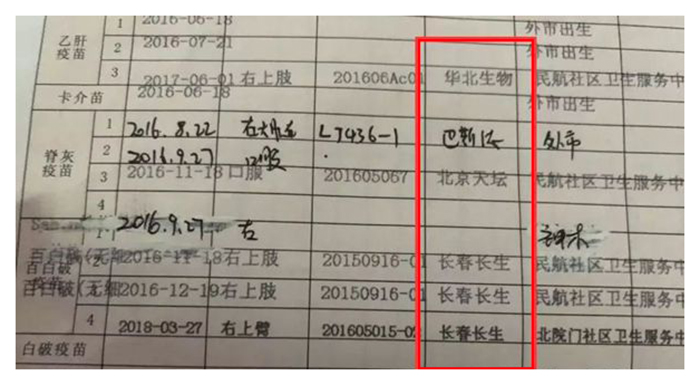 1 2016-06-18 外市出生
乙肝疫苗 2 2016-07-21 外市出生
3 2017-06-01 右上肢 201606Ac01 华北生物 民航社区卫生服务中
卡介苗 2016-06-18 外市出生
1 2016.8.22 L7436-1 巴斯德 外市
脊灰疫苗 2 2016.9.27 口服
3 2016-11-18 口服 201605067 北京天坛 民航社区卫生服务中
4
1 2016.9.27 右
百白破(无细 2016-11-18 右上肢 20150916-01 长春长生 民航社区卫生服务中
百白破(无细 2016-12-19 右上肢 20150916-01 长春长生 民航社区卫生服务中
4 2018-03-27 右上臂 201605015-02 长春长生 北院门社区卫生服务中
白破疫苗